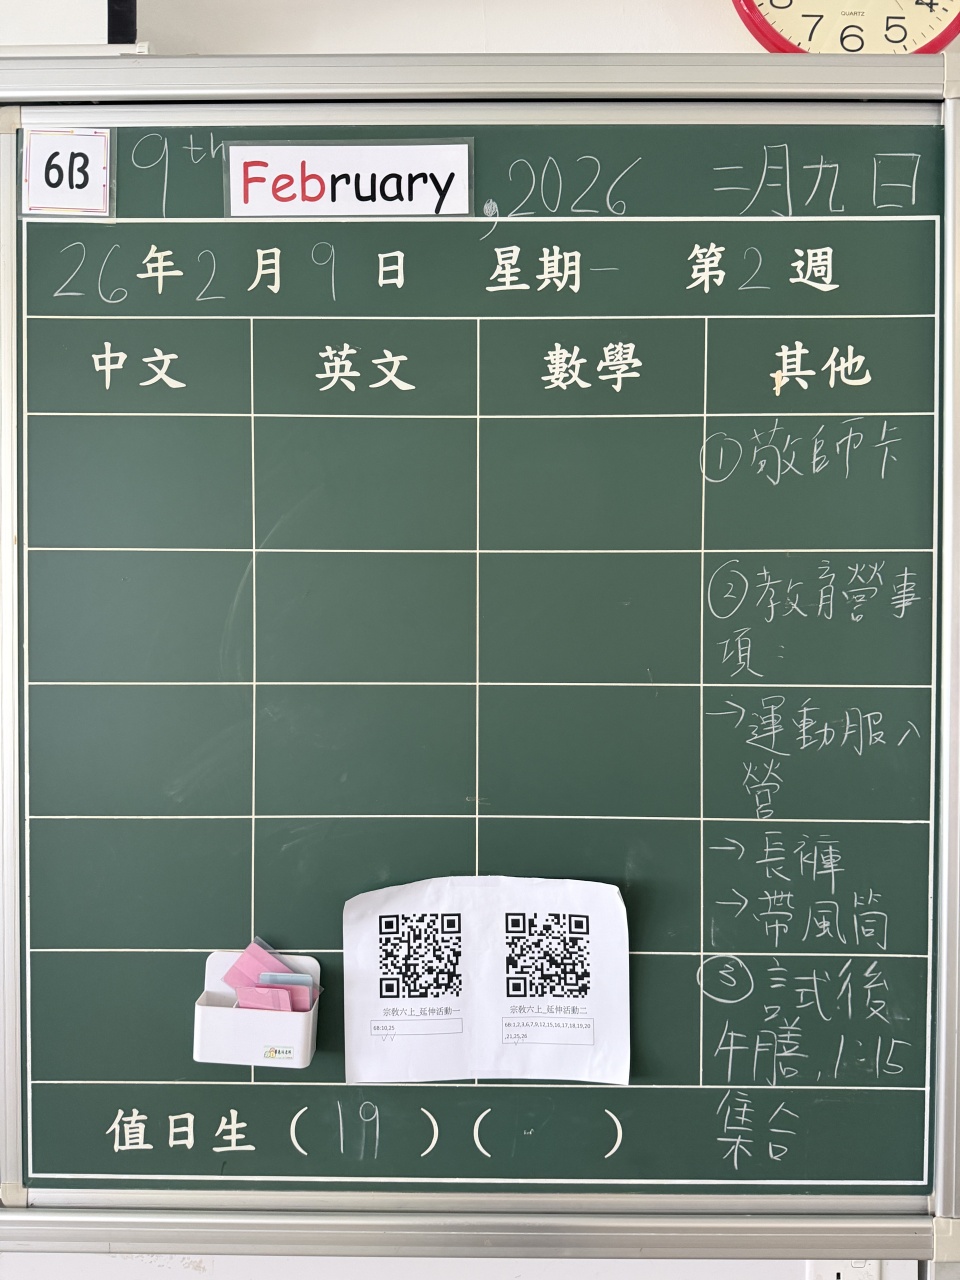 7 6 5 4
QUARTZ
6B 9th February, 2026 二月九日
26年2月9日 星期一 第2週
中文 英文 數學 其他
①敬師卡
②教育營事
項：
→運動服入
營
→長褲
→帶風筒
③試後
午膳，1:15
集合
宗教六上_延伸活動一
6B:10,25
宗教六上_延伸活動二
6B:1,2,3,6,7,9,12,15,16,17,18,19,20
,21,25,26
值日生（19）（ ）